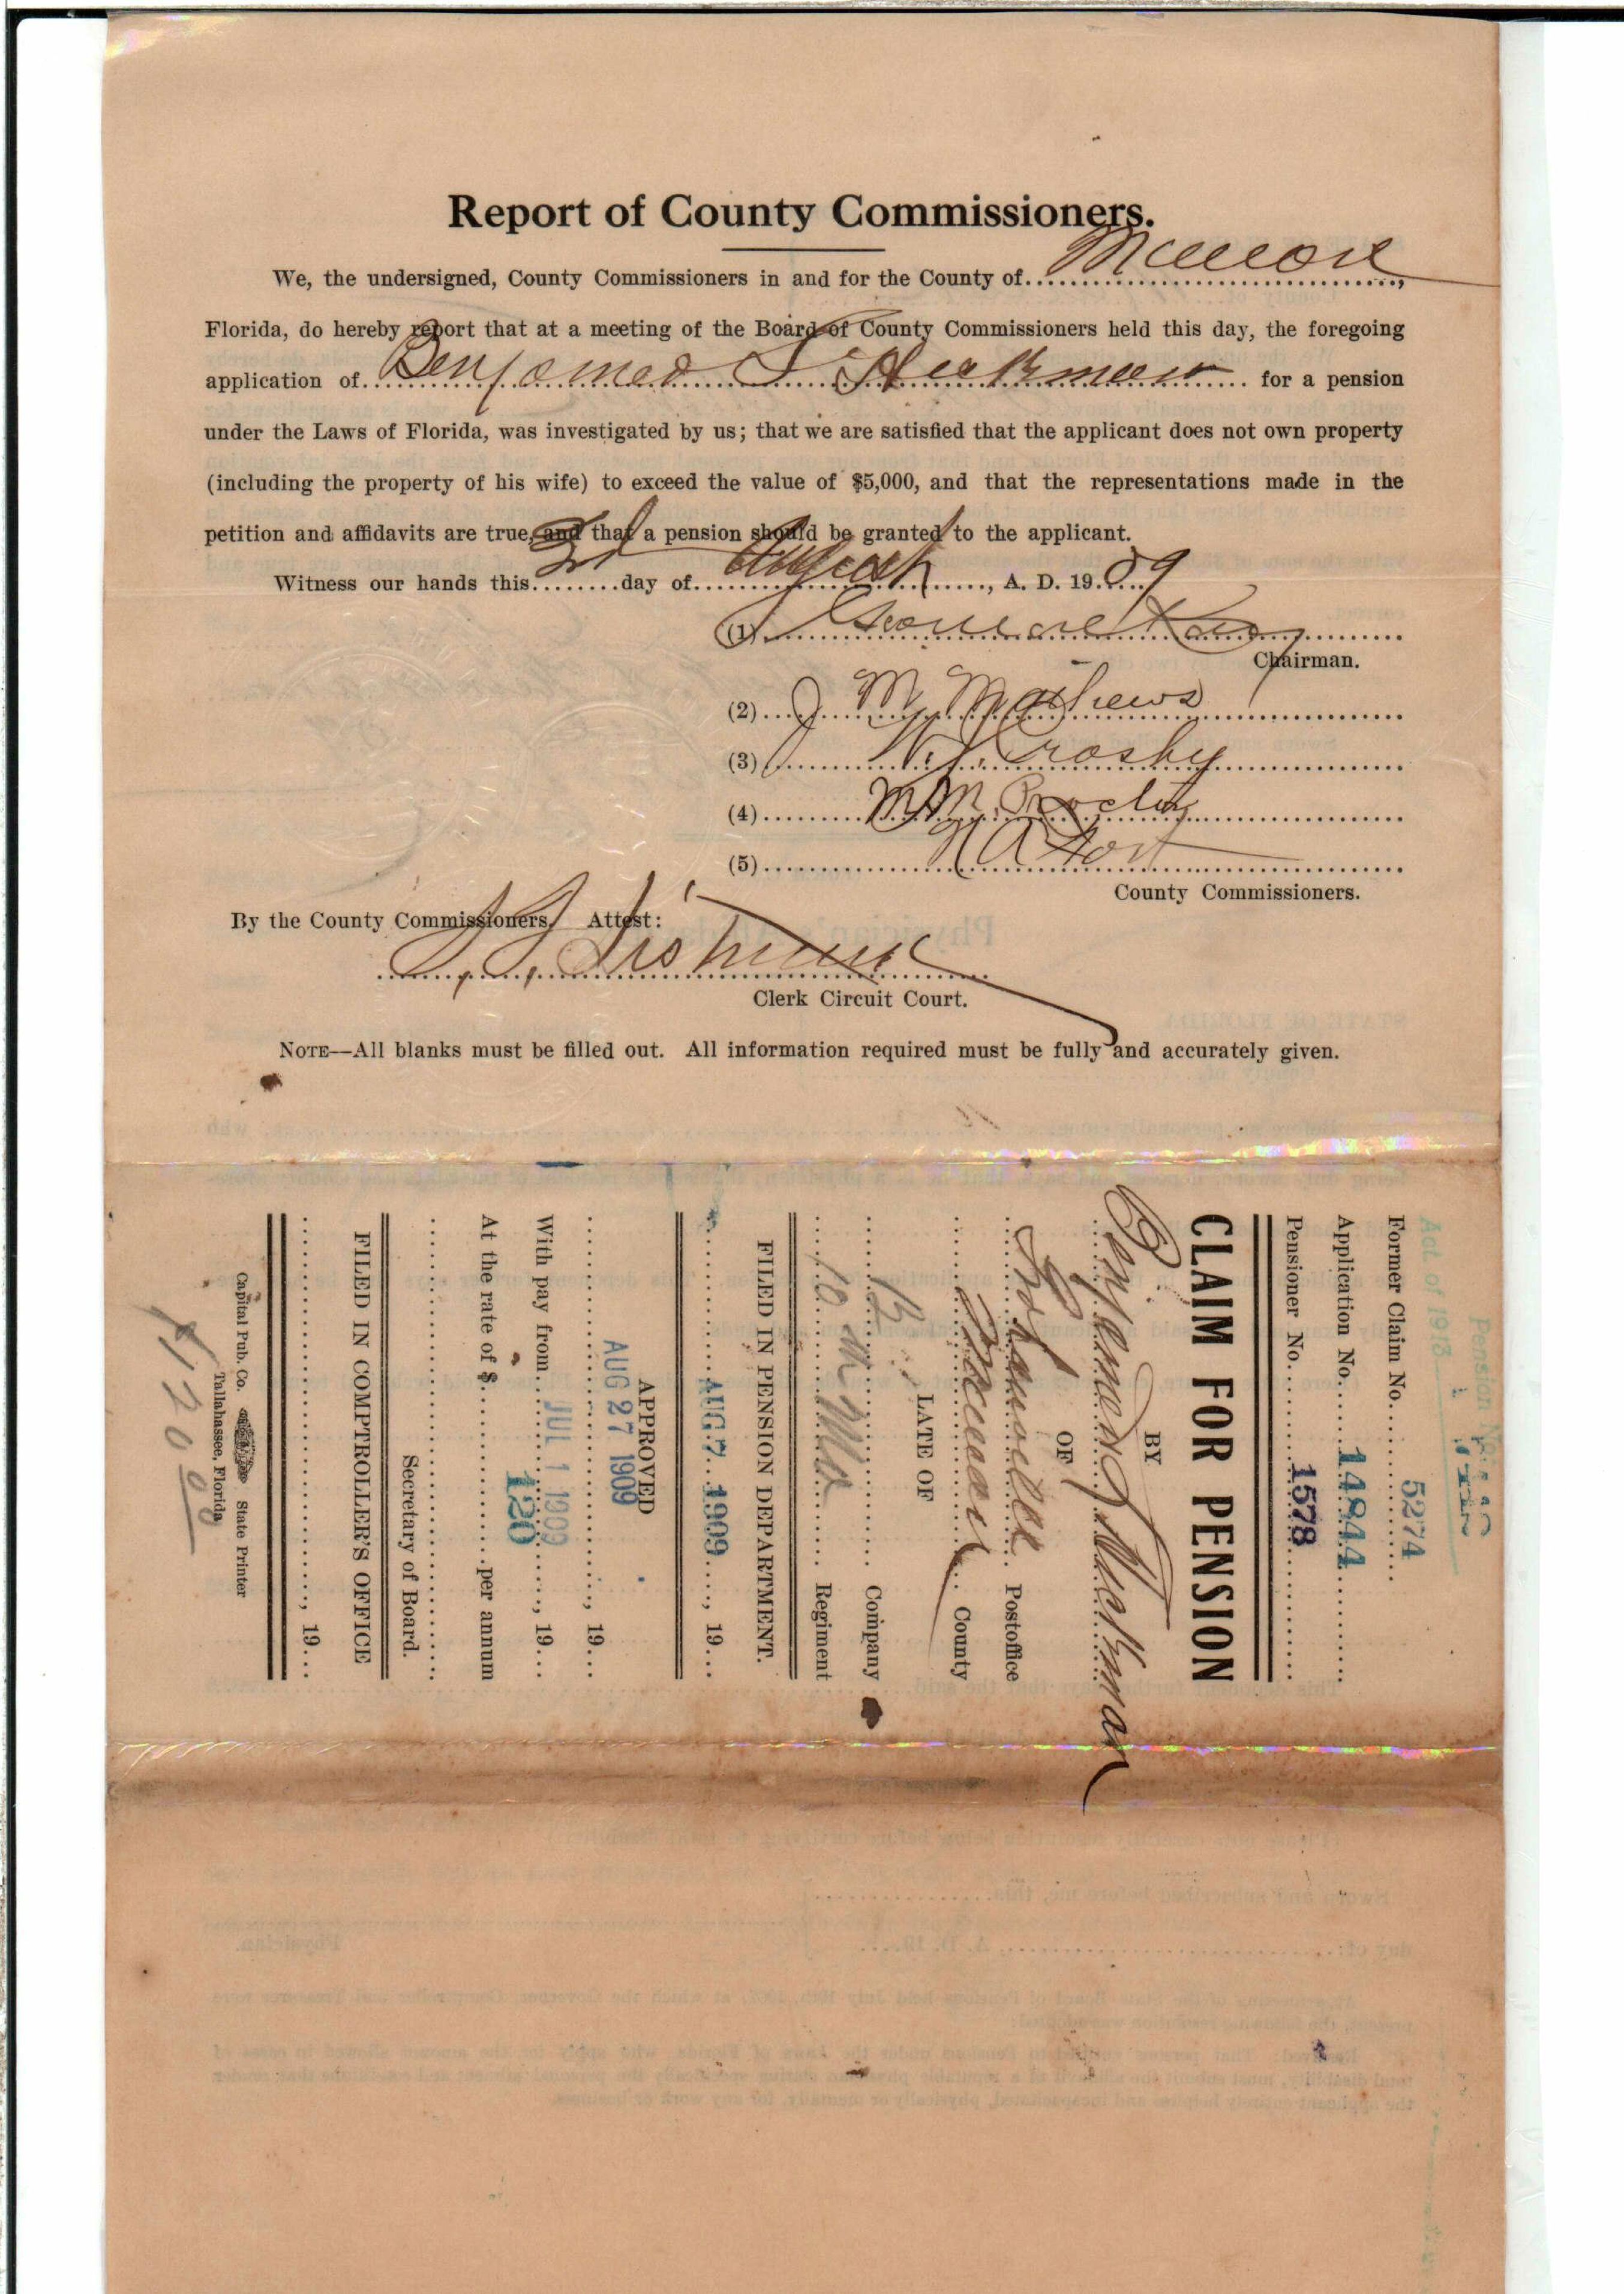 Report of County Commissioners.
We, the undersigned, County Commissioners in and for the County of Marion,
Florida, do hereby report that at a meeting of the Board of County Commissioners held this day, the foregoing
application of for a pension
under the Laws of Florida, was investigated by us; that we are satisfied that the applicant does not own property
(including the property of his wife) to exceed the value of $5,000, and that the representations made in the
petition and affidavits are true, and that a pension should be granted to the applicant.
Witness our hands this 3rd day of August, A. D. 1909
(1)
Chairman.
(2) J M Mathews
(3) W. J. Crosby
(4) M. M. Proctor
(5) N A Fort
County Commissioners.
By the County Commissioners. Attest:
Clerk Circuit Court.
NOTE—All blanks must be filled out. All information required must be fully and accurately given.
Pension No
Act of 1913
Former Claim No. 5274
Application No. 14844
Pensioner No. 1578
CLAIM FOR PENSION
BY
OF
Postoffice
County
LATE OF
B Company
10 Regiment
FILED IN PENSION DEPARTMENT.
AUG 7 1909, 19
APPROVED
AUG 27 1909, 19
With pay from JUL 1 1909, 19
At the rate of $ 120 per annum
Secretary of Board.
FILED IN COMPTROLLER'S OFFICE
, 19
Capital Pub. Co. State Printer
Tallahassee, Florida
$120 00